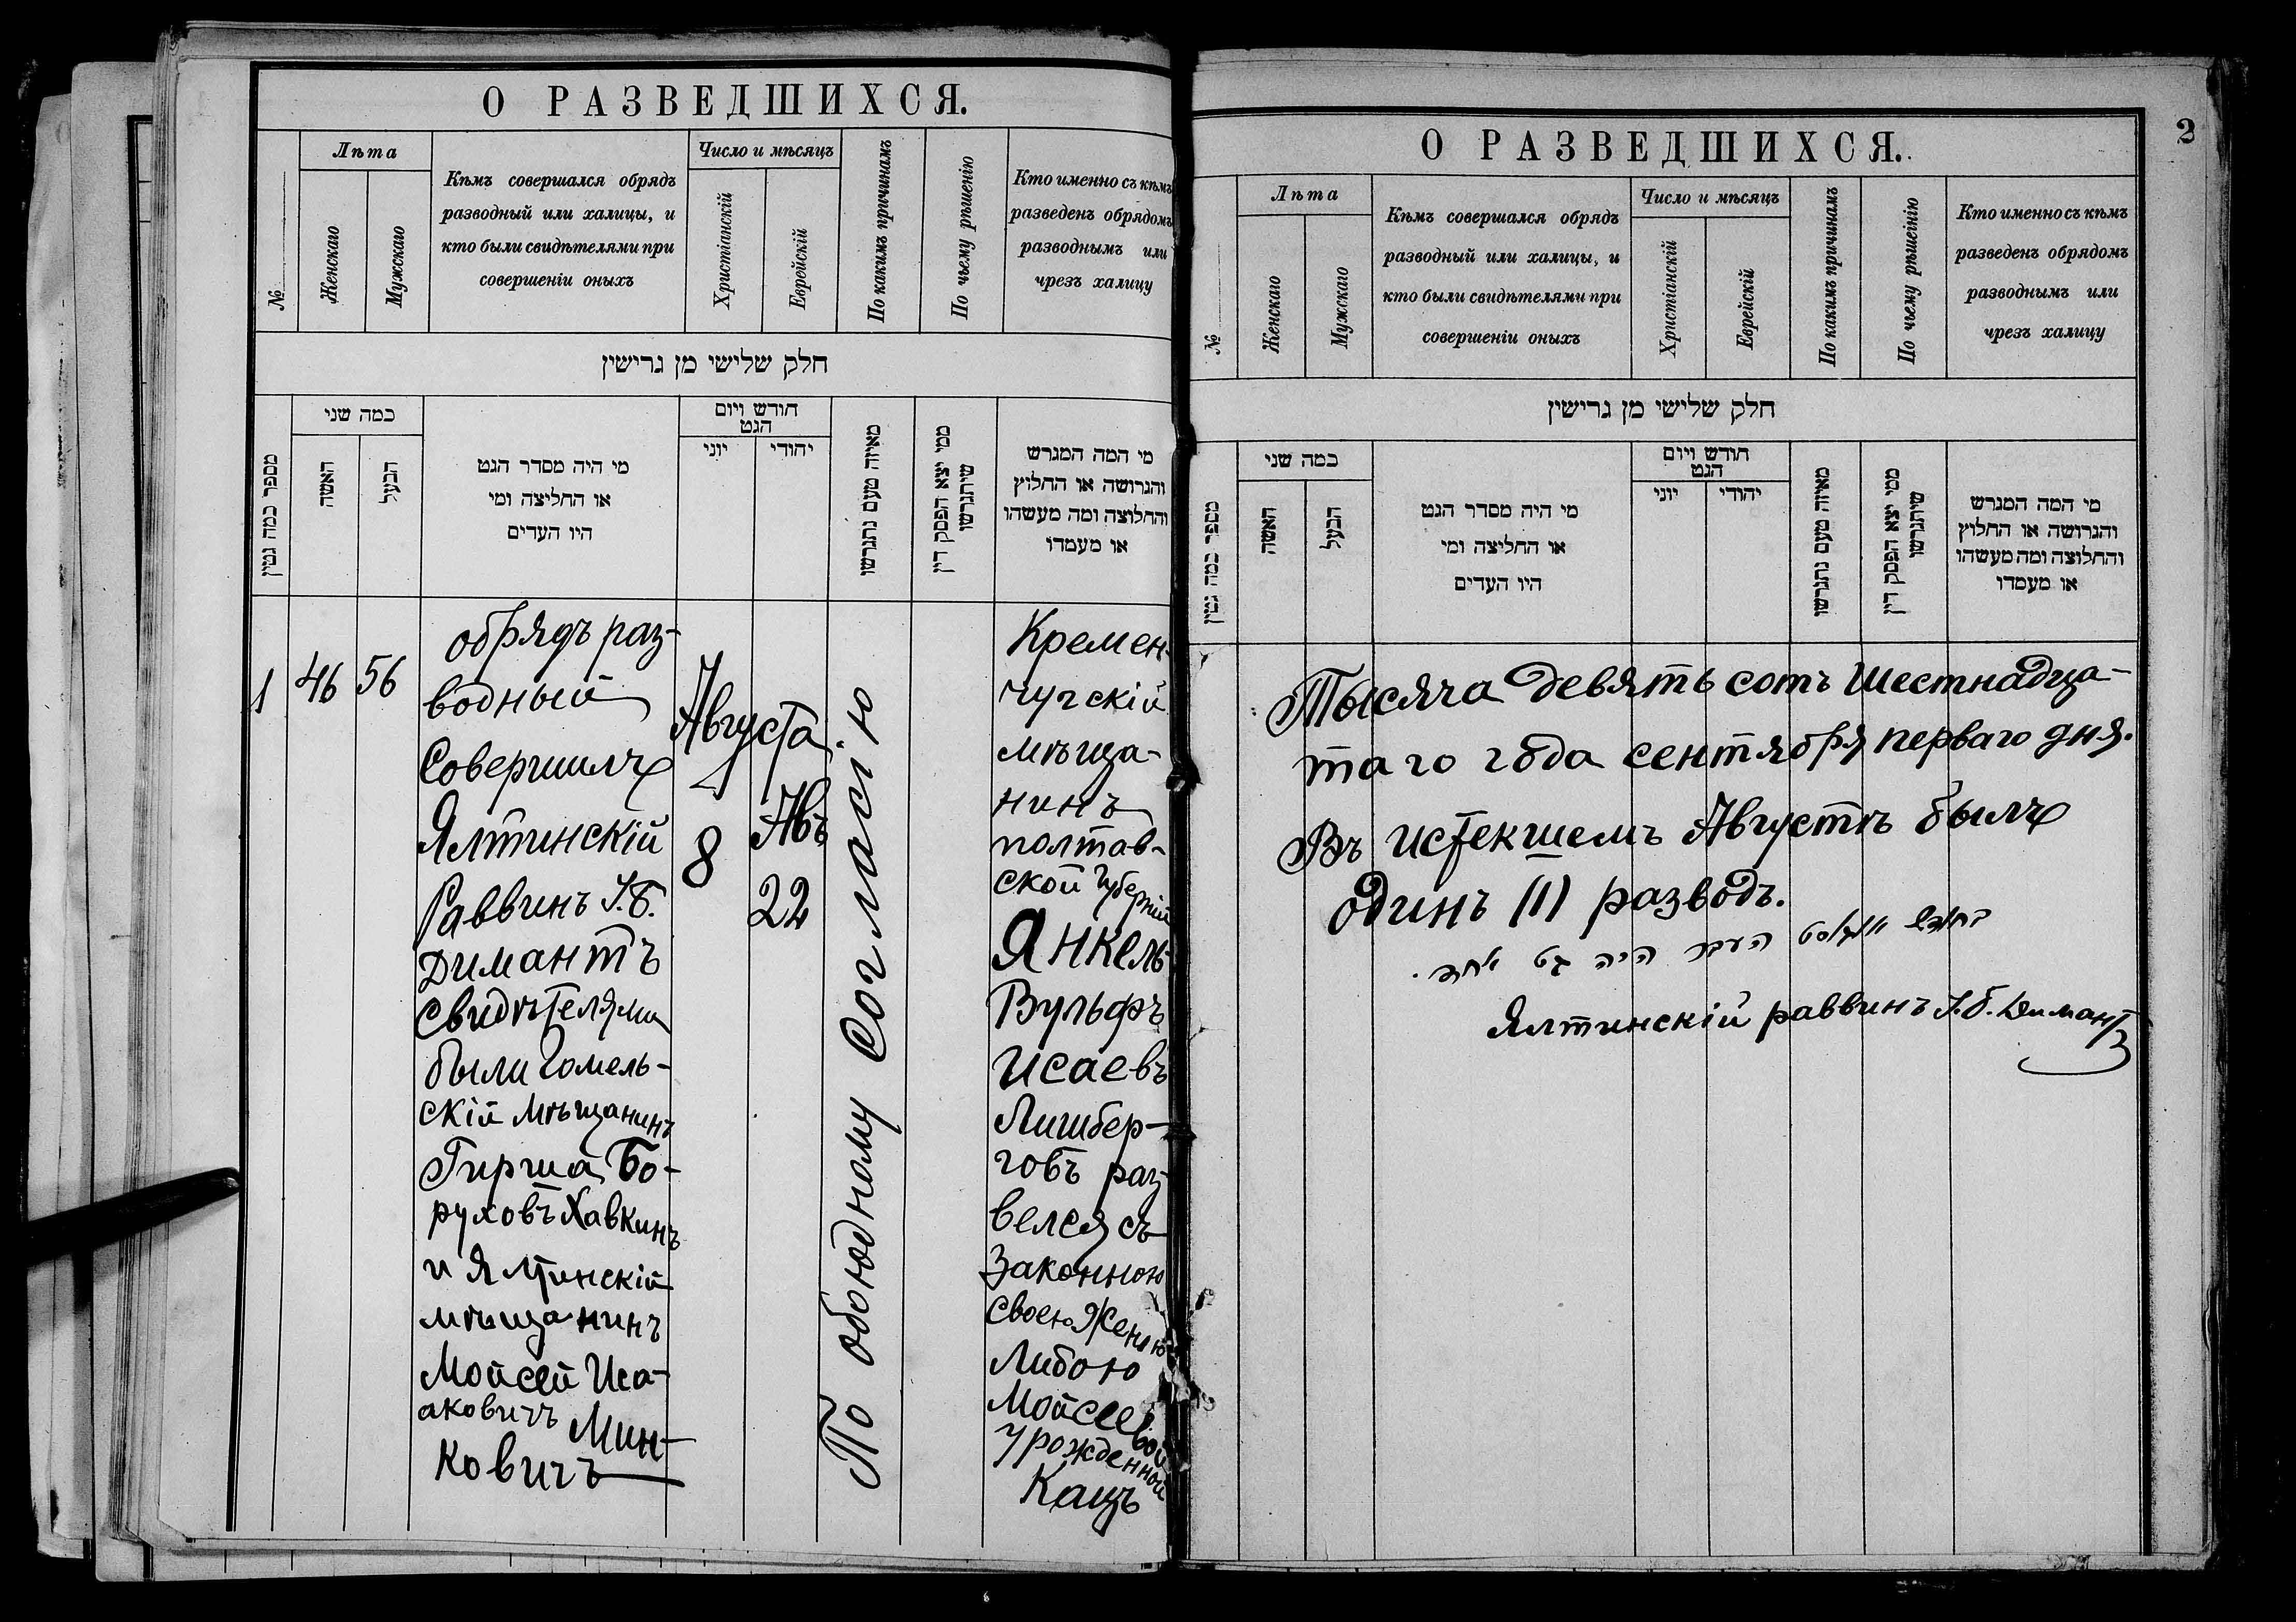 О РАЗВЕДШИХСЯ.
№
Лѣта
Женскаго
Мужскаго
Кѣмъ совершался обрядъ
разводный или халицы, и
кто были свидѣтелями при
совершеніи оныхъ
Число и мѣсяцъ
Христіанскій
Еврейскій
По какимъ причинамъ
По чьему рѣшенію
Кто именно съ кѣмъ
разведенъ обрядомъ
разводнымъ или
чрезъ халицу
חלק שלישי מן גרישין
מספר כמה גטין
כמה שני
האשה
הבעל
מי היה מסדר הגט
או החליצה ומי
היו העדים
חודש ויום
הגט
יוני
יהודי
מאיזה טעם נתגרשו
ממי יצא הפסק דין
שיתגרשו
מי המה המגרש
והגרושה או החלוץ
והחלוצה ומה מעשהו
או מעמדו
1
46
56
обрядъ раз-
водный
Совершилъ
Ялтинскій
Раввинъ І.Б.
Димантъ
Свидѣтелями
были Гомель-
скій мѣщанинъ
Гирша Бо-
руховъ Хавкинъ
и Ялтинскій
мѣщанинъ
Мойсей Иса-
аковичъ Мин-
ковичъ
Августа
8
Авъ
22
По обоюдному Согласію
Кремен-
чугскій
мѣща-
нинъ
полтав-
ской Губерніи
Янкель-
Вульфъ
Исаевъ
Лишбер-
говъ раз-
велся съ
Законною
своею Женою
Либою
Мойсеевой
урожденной
Кацъ
2
О РАЗВЕДШИХСЯ.
№
Лѣта
Женскаго
Мужскаго
Кѣмъ совершался обрядъ
разводный или халицы, и
кто были свидѣтелями при
совершеніи оныхъ
Число и мѣсяцъ
Христіанскій
Еврейскій
По какимъ причинамъ
По чьему рѣшенію
Кто именно съ кѣмъ
разведенъ обрядомъ
разводнымъ или
чрезъ халицу
חלק שלישי מן גרישין
מספר כמה גטין
כמה שני
האשה
הבעל
מי היה מסדר הגט
או החליצה ומי
היו העדים
חודש ויום
הגט
יוני
יהודי
מאיזה טעם נתגרשו
ממי יצא הפסק דין
שיתגרשו
מי המה המגרש
והגרושה או החלוץ
והחלוצה ומה מעשהו
או מעמדו
Тысяча девятьсотъ шестнадца-
таго года сентября перваго дня.
Въ истекшемъ Августѣ былъ
одинъ (1) разводъ.
בחדש אוגוסט העבר היה גט אחד.
Ялтинскій раввинъ І.Б. Димантъ